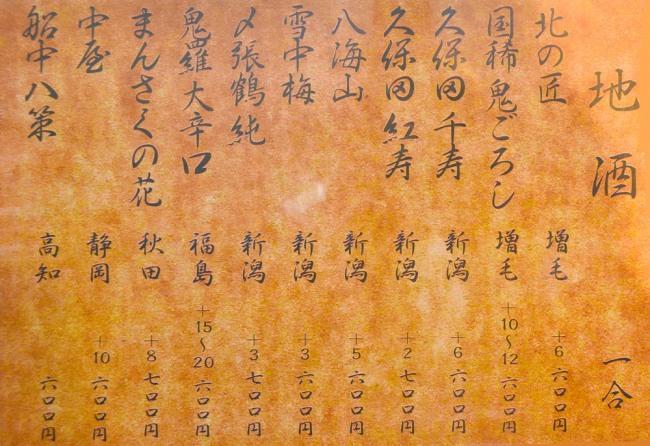 地酒 一合
北の匠 増毛 +6 六〇〇円
国稀 鬼ごろし 増毛 +10~12 六〇〇円
久保田 千寿 新潟 +6 六〇〇円
久保田 紅寿 新潟 +2 七〇〇円
八海山 新潟 +5 六〇〇円
雪中梅 新潟 +3 六〇〇円
〆張鶴 純 新潟 +3 七〇〇円
鬼羅 大辛口 福島 +15~20 六〇〇円
まんさくの花 秋田 +8 七〇〇円
中屋 静岡 +10 六〇〇円
船中八策 高知 六〇〇円